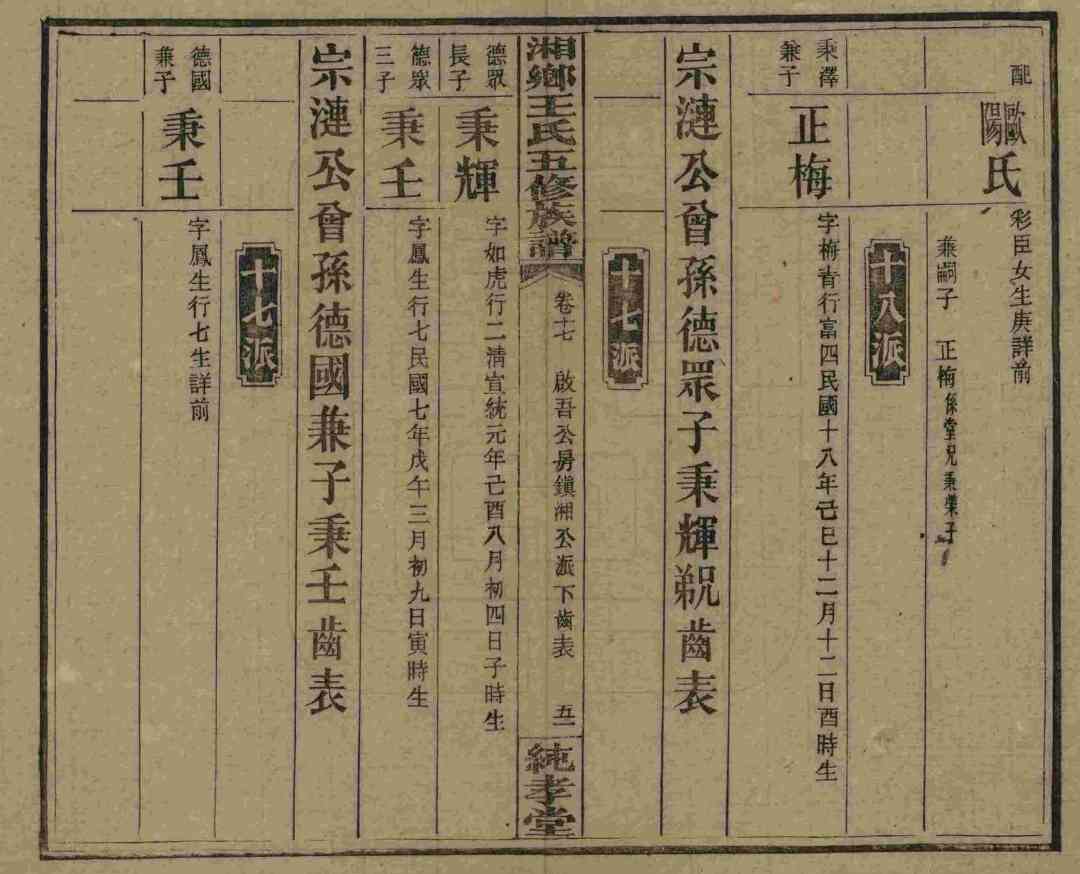 配
歐陽氏
彩臣女生庚詳前
兼嗣子 正梅係堂兄秉彙子
十八派
秉澤兼子
正梅
字梅青行富四民國十八年己巳十二月十二日酉時生
宗漣公曾孫德眾子秉輝祝齒表
十七派
湘鄉王氏五修族譜
卷十七 啟吾公房鎮湘公派下齒表 五一
純孝堂
德眾長子
秉輝
字如虎行二清宣統元年己酉八月初四日子時生
德眾三子
秉壬
字鳳生行七民國七年戊午三月初九日寅時生
宗漣公曾孫德國兼子秉壬齒表
十七派
德國兼子
秉壬
字鳳生行七生詳前